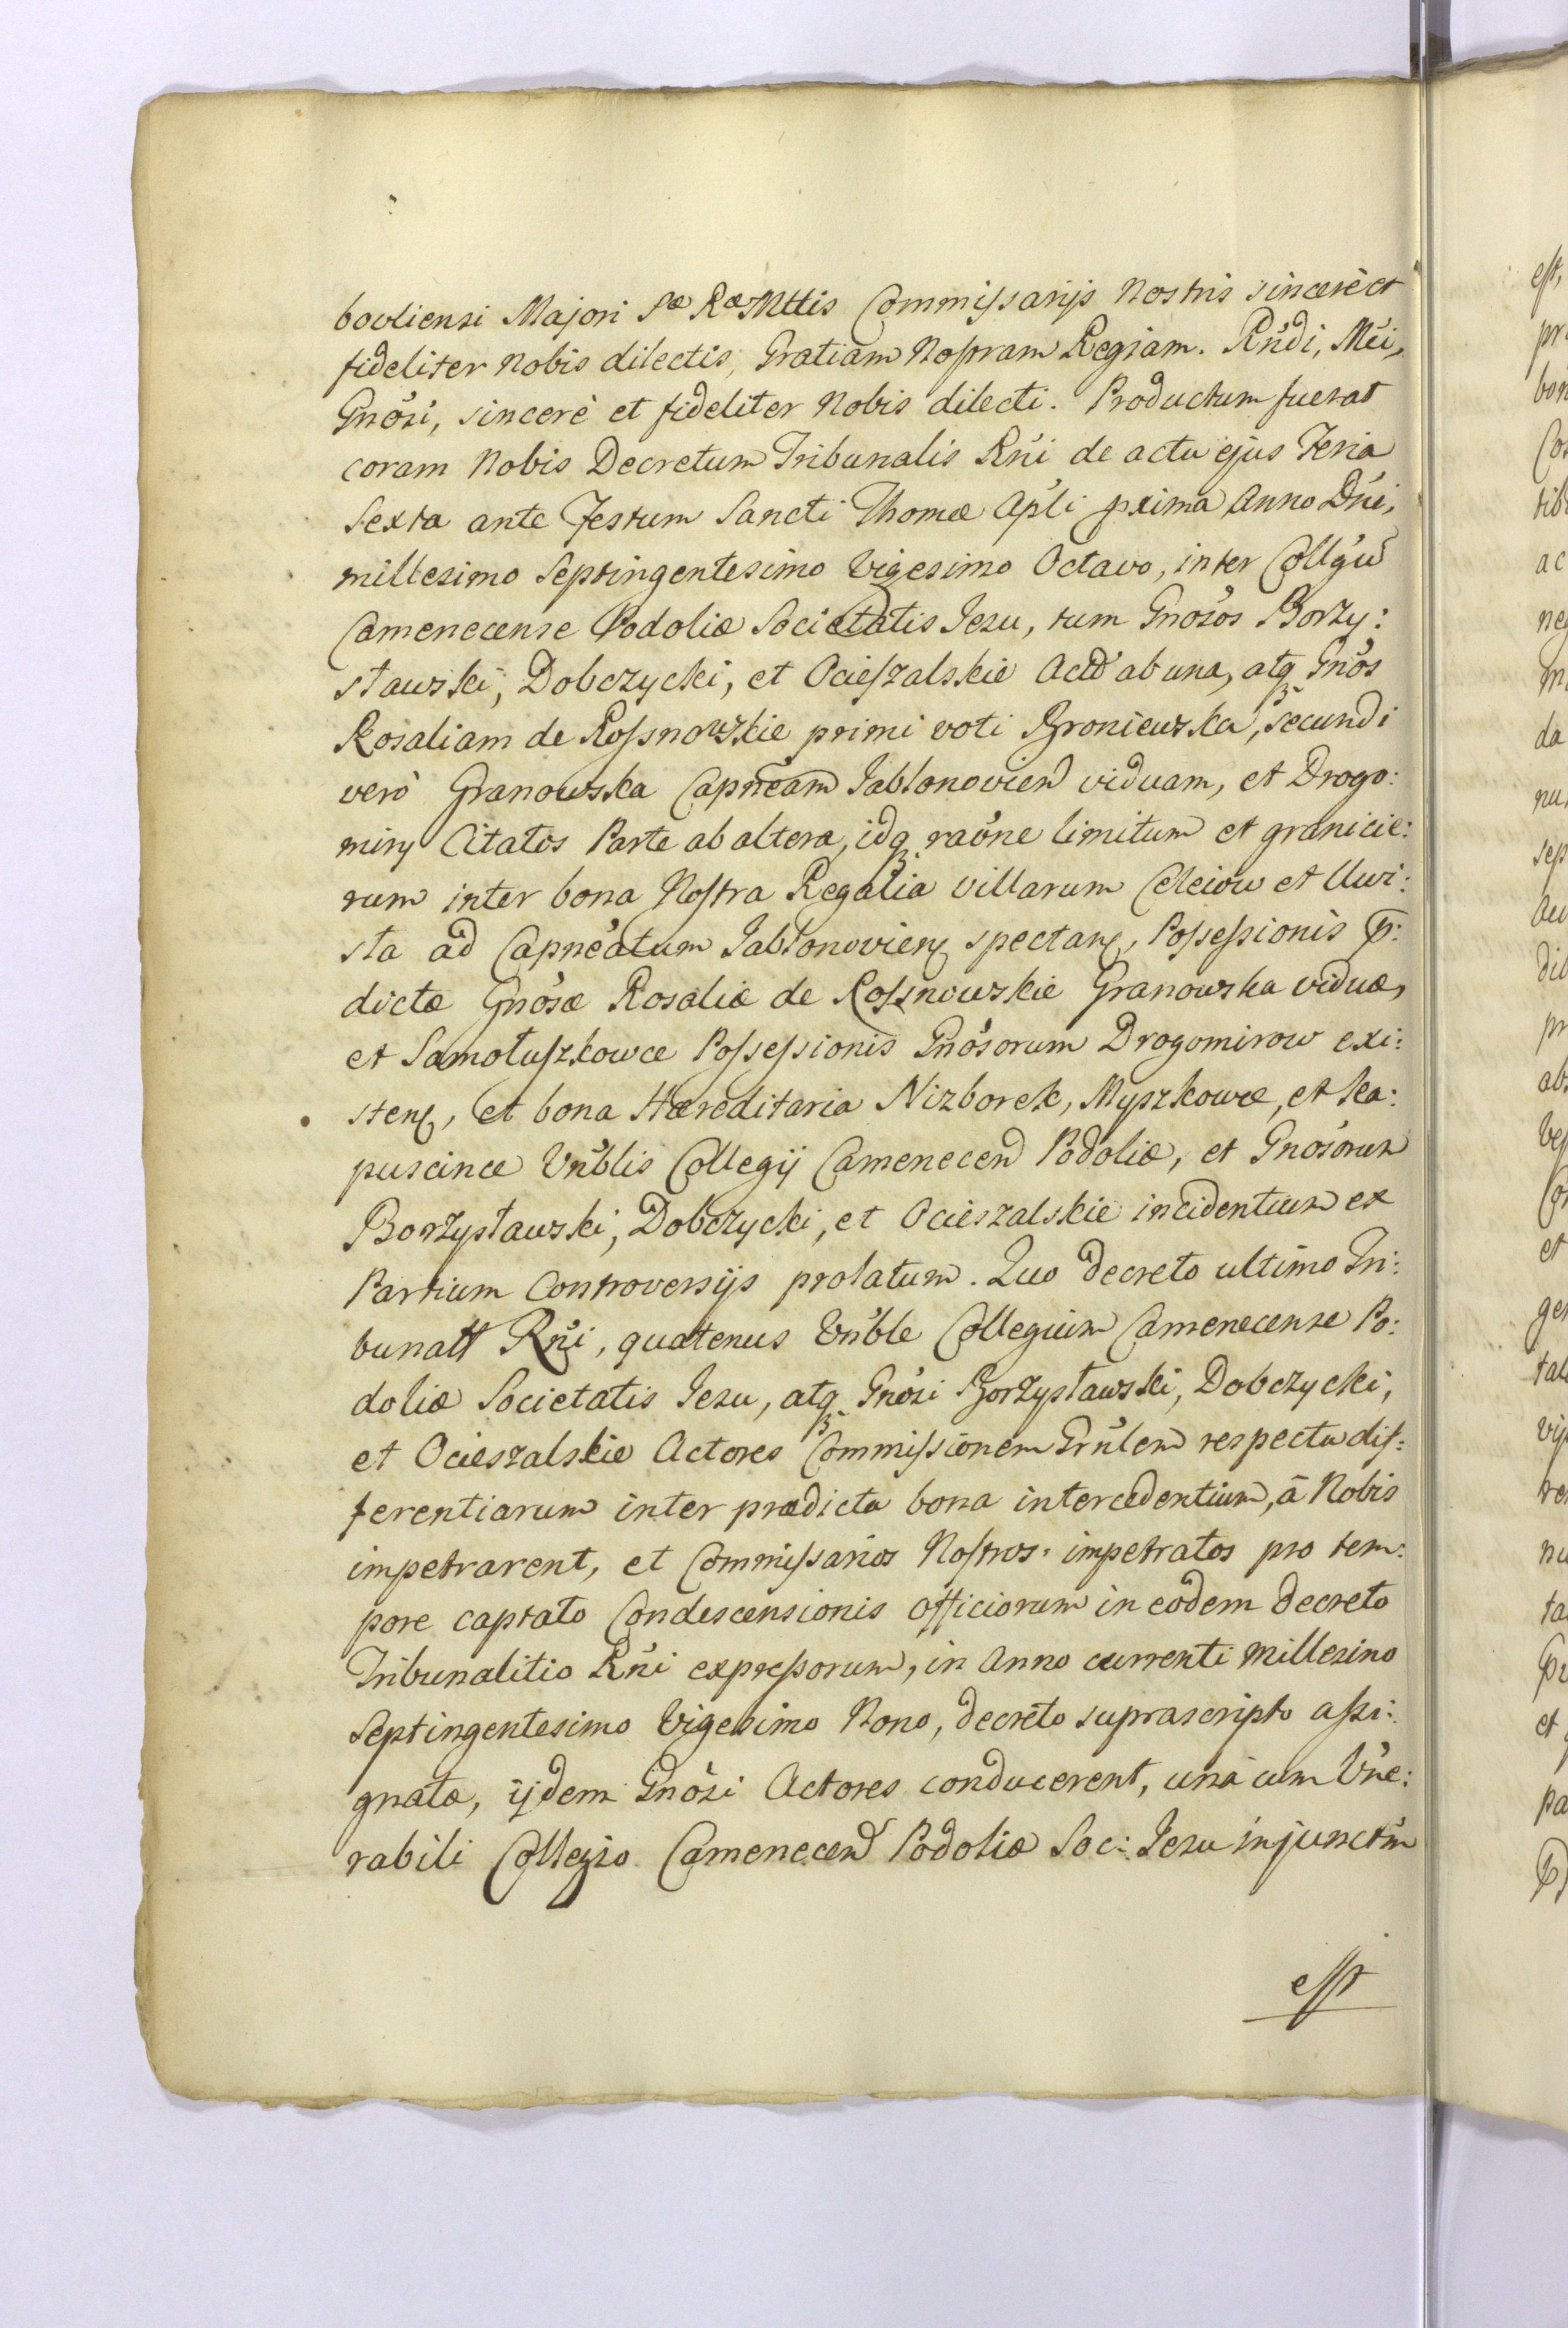 bovliensi Majori Sæ Ræ Mttis Commissarijs Nostris sincerè et
fideliter Nobis dilectis, Gratiam Nostram Regiam. Rńdi, Mći,
Gnosi, sincerè et fideliter Nobis dilecti. Productum fuerat
coram Nobis Decretum Tribunalis Rńi de actu ejus Feria
Sexta ante Festum Sancti Thomæ Apłi pxima Anno Dńi,
millesimo Septingentesimo Vigesimo Octavo, inter Collgiu
Camenecense Podoliæ Societatis Jesu, tum Gnosos Borzy:
sławski, Dobczycki, et Ocieszalskie Actō ab una, atq Gnos
Rosaliam de Rossnowskie primi voti Broniewska, secundi
verò Granowska Capneam Jabłonovien viduam, et Drogo:
miry Citatos Parte ab altera, idq raōne limitum et granicie:
rum inter bona Nostra Regalia villarum Celeiow et Uwi:
sła ad Capneatum Jabłonovien spectan, Possessionis p:
dictæ Gnosæ Rosaliæ de Rossnowskie Granowska viduæ,
et Samołuszkowce Possessionis Gnosorum Drogomirow exi:
sten, et bona Hæreditaria Nizborek, Myszkowce, et Ka:
puscince Vnblis Collegij Camenecen Podoliæ, et Gnosorum
Borzysławski, Dobczycki, et Ocieszalskie incidentium ex
Partium Controversijs prolatum. Quo decreto ultimo Tri:
bunalt Rńi, quatenus Vnble Collegium Camenecense Po:
doliæ Societatis Jesu, atq Gnosi Borzysławski, Dobczycki,
et Ocieszalskie Actores Commissionem Grńlem respectu dif:
ferentiarum inter prædicta bona intercedentium, à Nobis
impetrarent, et Commissarios Nostros impetratos pro tem:
pore captato Condescensionis Officiorum in eodem decreto
Tribunalitio Rńi expressorum, in Anno currenti millesimo
Septingentesimo Vigesimo Nono, decreto suprascripto assi:
gnatæ, ijdem Gnosi Actores conducerent, unà cum Vne:
rabili Collegio Camenecen Podoliæ Soc: Jesu injunctm
est